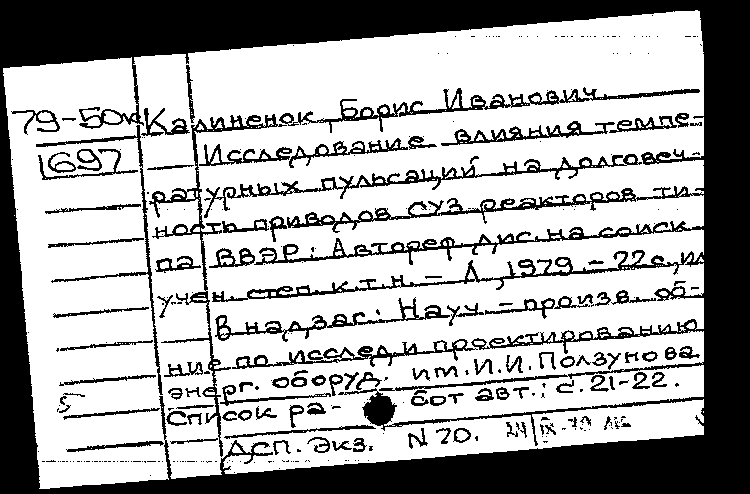 79-50к Калиненок, Борис Иванович.
1697 Исследование влияния темпе-
ратурных пульсаций на долговеч-
ность приводов СУЗ реакторов ти-
па ВВЭР: Автореф. дис. на соиск.
учен. степ. к.т.н. – Л., 1979. – 22 с., ил
В надзаг.: Науч.-произв. об-
ние по исслед. и проектированию
энерг. оборуд. им. И.И. Ползунова.
5 Список ра- бот авт.: с. 21-22.
ДСП. Экз. N 70. 24/IX-79